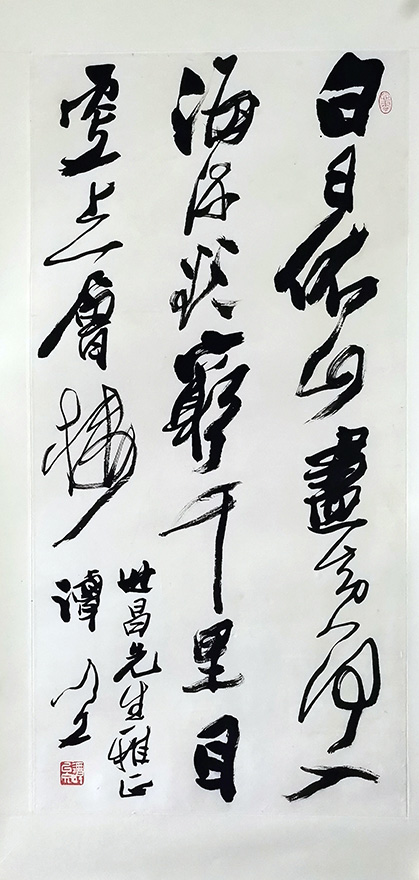 白日依山盡黄河入
海流欲窮千里目
更上一層樓
世昌先生雅正
譚